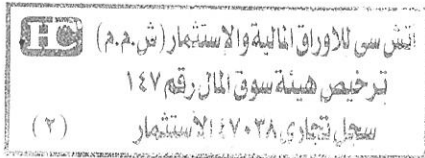 اتش سى للاوراق المالية والاستثمار (ش.م.م) HC
ترخيص هيئة سوق المال رقم ١٤٧
سجل تجارى ٤٧٠٣٨ الاستثمار (٢)